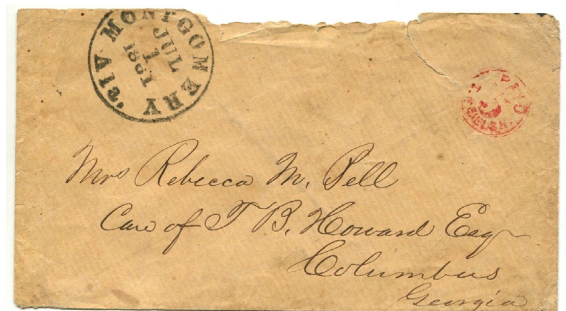 MONTGOMERY Ala.
JUL
1
1861
PAID
5
Mrs Rebecca M.
Care of T B. Howard Esqr
Columbus
Georgia